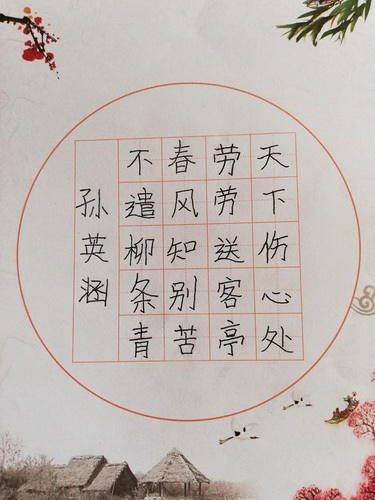 天下伤心处
劳劳送客亭
春风知别苦
不遣柳条青
孙英涵